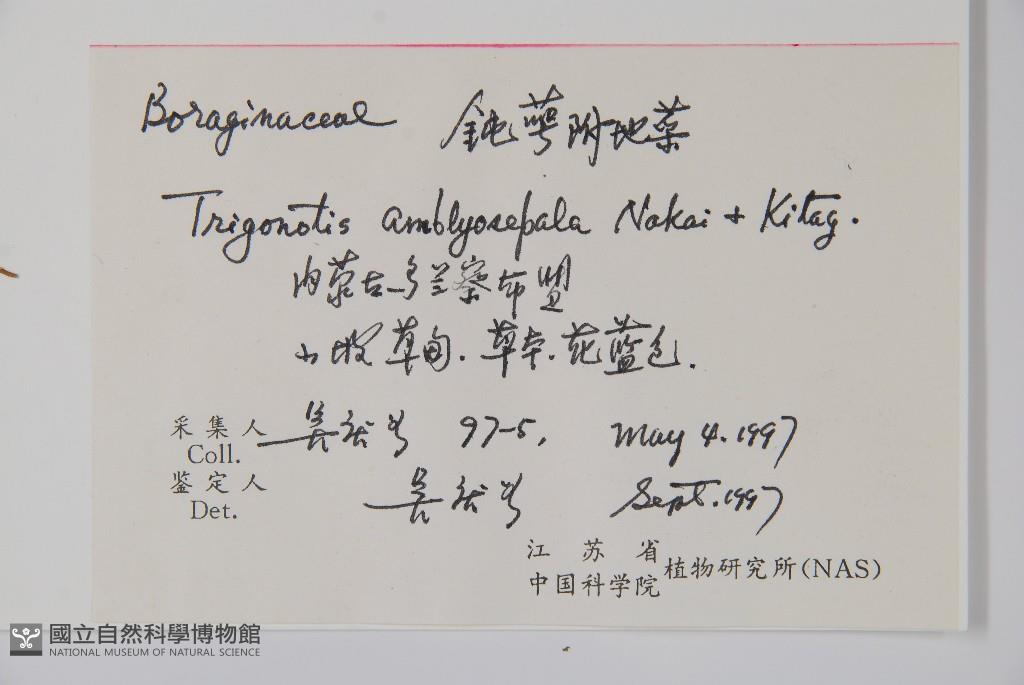 Boraginaceae 鈍萼附地菜
Trigonotis amblyosepala Nakai + Kitag.
内蒙古乌兰察布盟
山坡草甸.草本.花蓝色.
采集人 97-5, May 4. 1997
Coll.
鉴定人 Sept. 1997
Det.
江苏省
中国科学院 植物研究所(NAS)
國立自然科學博物館
NATIONAL MUSEUM OF NATURAL SCIENCE